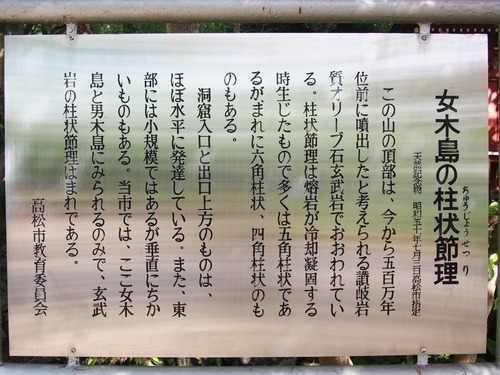 女木島の柱状節理
おゅうじょうせつり
天然記念物 昭和五十一年七月三日高松市指定
この山の頂部は、今から五百万年
位前に噴出したと考えられる讃岐岩
質オリーブ石玄武岩でおおわれてい
る。柱状節理は熔岩が冷却凝固する
時生じたもので多くは五角柱状であ
るがまれに六角柱状、四角柱状のも
のもある。
洞窟入口と出口上方のものは、
ほぼ水平に発達している。また、東
部には小規模ではあるが垂直にちか
いものもある。当市では、ここ女木
島と男木島にみられるのみで、玄武
岩の柱状節理はまれである。
高松市教育委員会